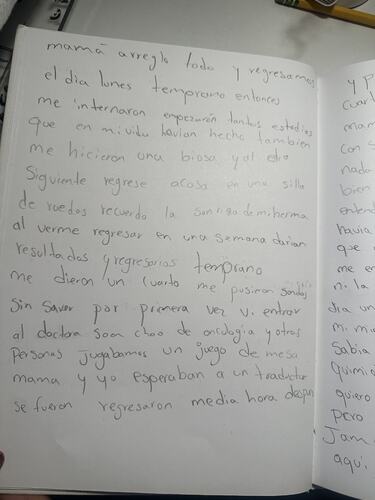 mamá arreglo todo y regresamos
el dia lunes temprano entonces
me internaron empezarón tantos estudios
que en mi vida havian hecho tambien
me hicieron una biosa y al dia
Siguiente regrese acasa en una silla
de ruedos recuerdo la sonrisa de mi herma
al verme regresar en una semana darian
resultados y regresarias temprano
me dieron un cuarto me pusieron sondas
Sin saver por primera vez v. entrar
al doctora Soon choo de oncologia y otras
personas jugabamos un juego de mesa
mama y yo esperaban a un traductor
se fueron regresaron media hora despu
y p
cuart
mam
con s
nada
bien
entend
havia
que
me en
n. la
dia un
m. mi
Sabia
quimio
quiero
pero
Jam
aqui.